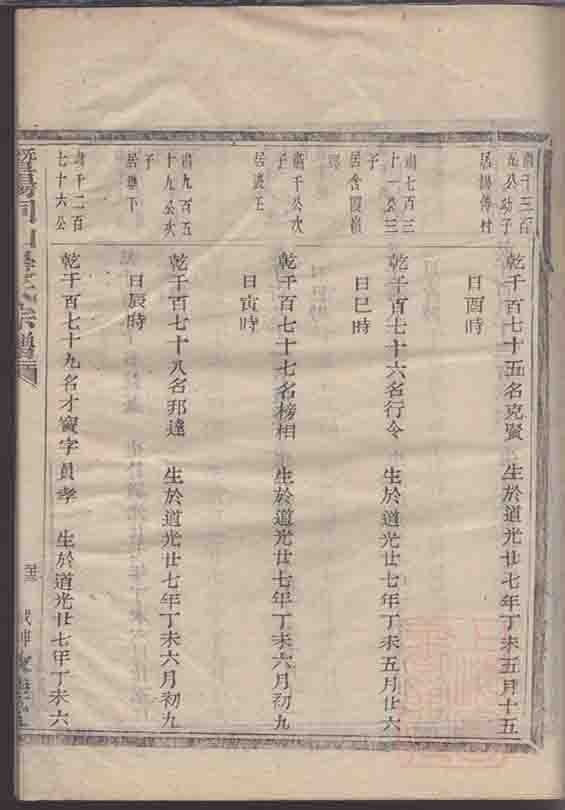 肅千三百
公幼子
居楊傅村
乾千百七十五名克賢 生於道光廿七年丁未五月十五
日酉時
肅七百三
十一公三
子
居含霞嶺
乾千百七十六名行令 生於道光廿七年丁未五月廿六
日巳時
肅千公次
子
居
乾千百七十七名榜相 生於道光廿七年丁未六月初九
日寅時
肅九百五
十九公次
子
居下
乾千百七十八名邦達 生於道光廿七年丁未六月初九
日辰時
肅千二百
七十六公
乾千百七十九名才寶字員孝 生於道光廿七年丁未六
暨陽同山氏宗譜